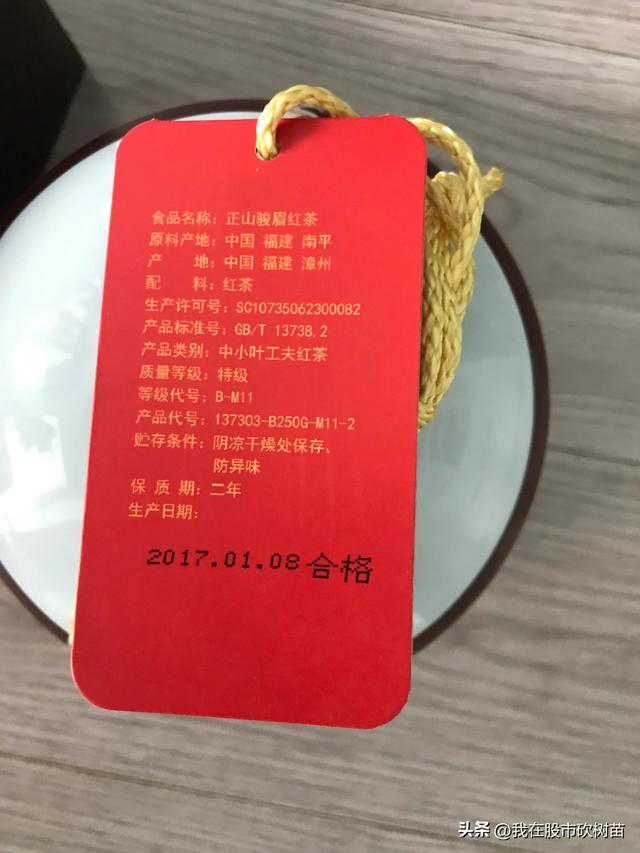 食品名称：正山骏眉红茶
原料产地：中国 福建 南平
产　　地：中国 福建 漳州
配　　料：红茶
生产许可号：SC10735062300082
产品标准号：GB/T 13738.2
产品类别：中小叶工夫红茶
质量等级：特级
等级代号：B-M11
产品代号：137303-B250G-M11-2
贮存条件：阴凉干燥处保存、
防异味
保 质 期：二年
生产日期：
2017.01.08 合格
头条 @我在股市砍树苗